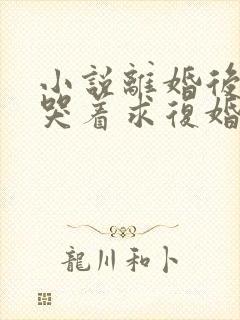 小説離婚後
哭着求復婚
龍川和卜